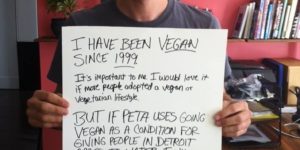 I HAVE BEEN VEGAN
SINCE 1999
It's important to me. I would love it
if more people adopted a vegan or
vegetarian lifestyle.
BUT IF PETA USES GOING
VEGAN AS A CONDITION FOR
GIVING PEOPLE IN DETROIT